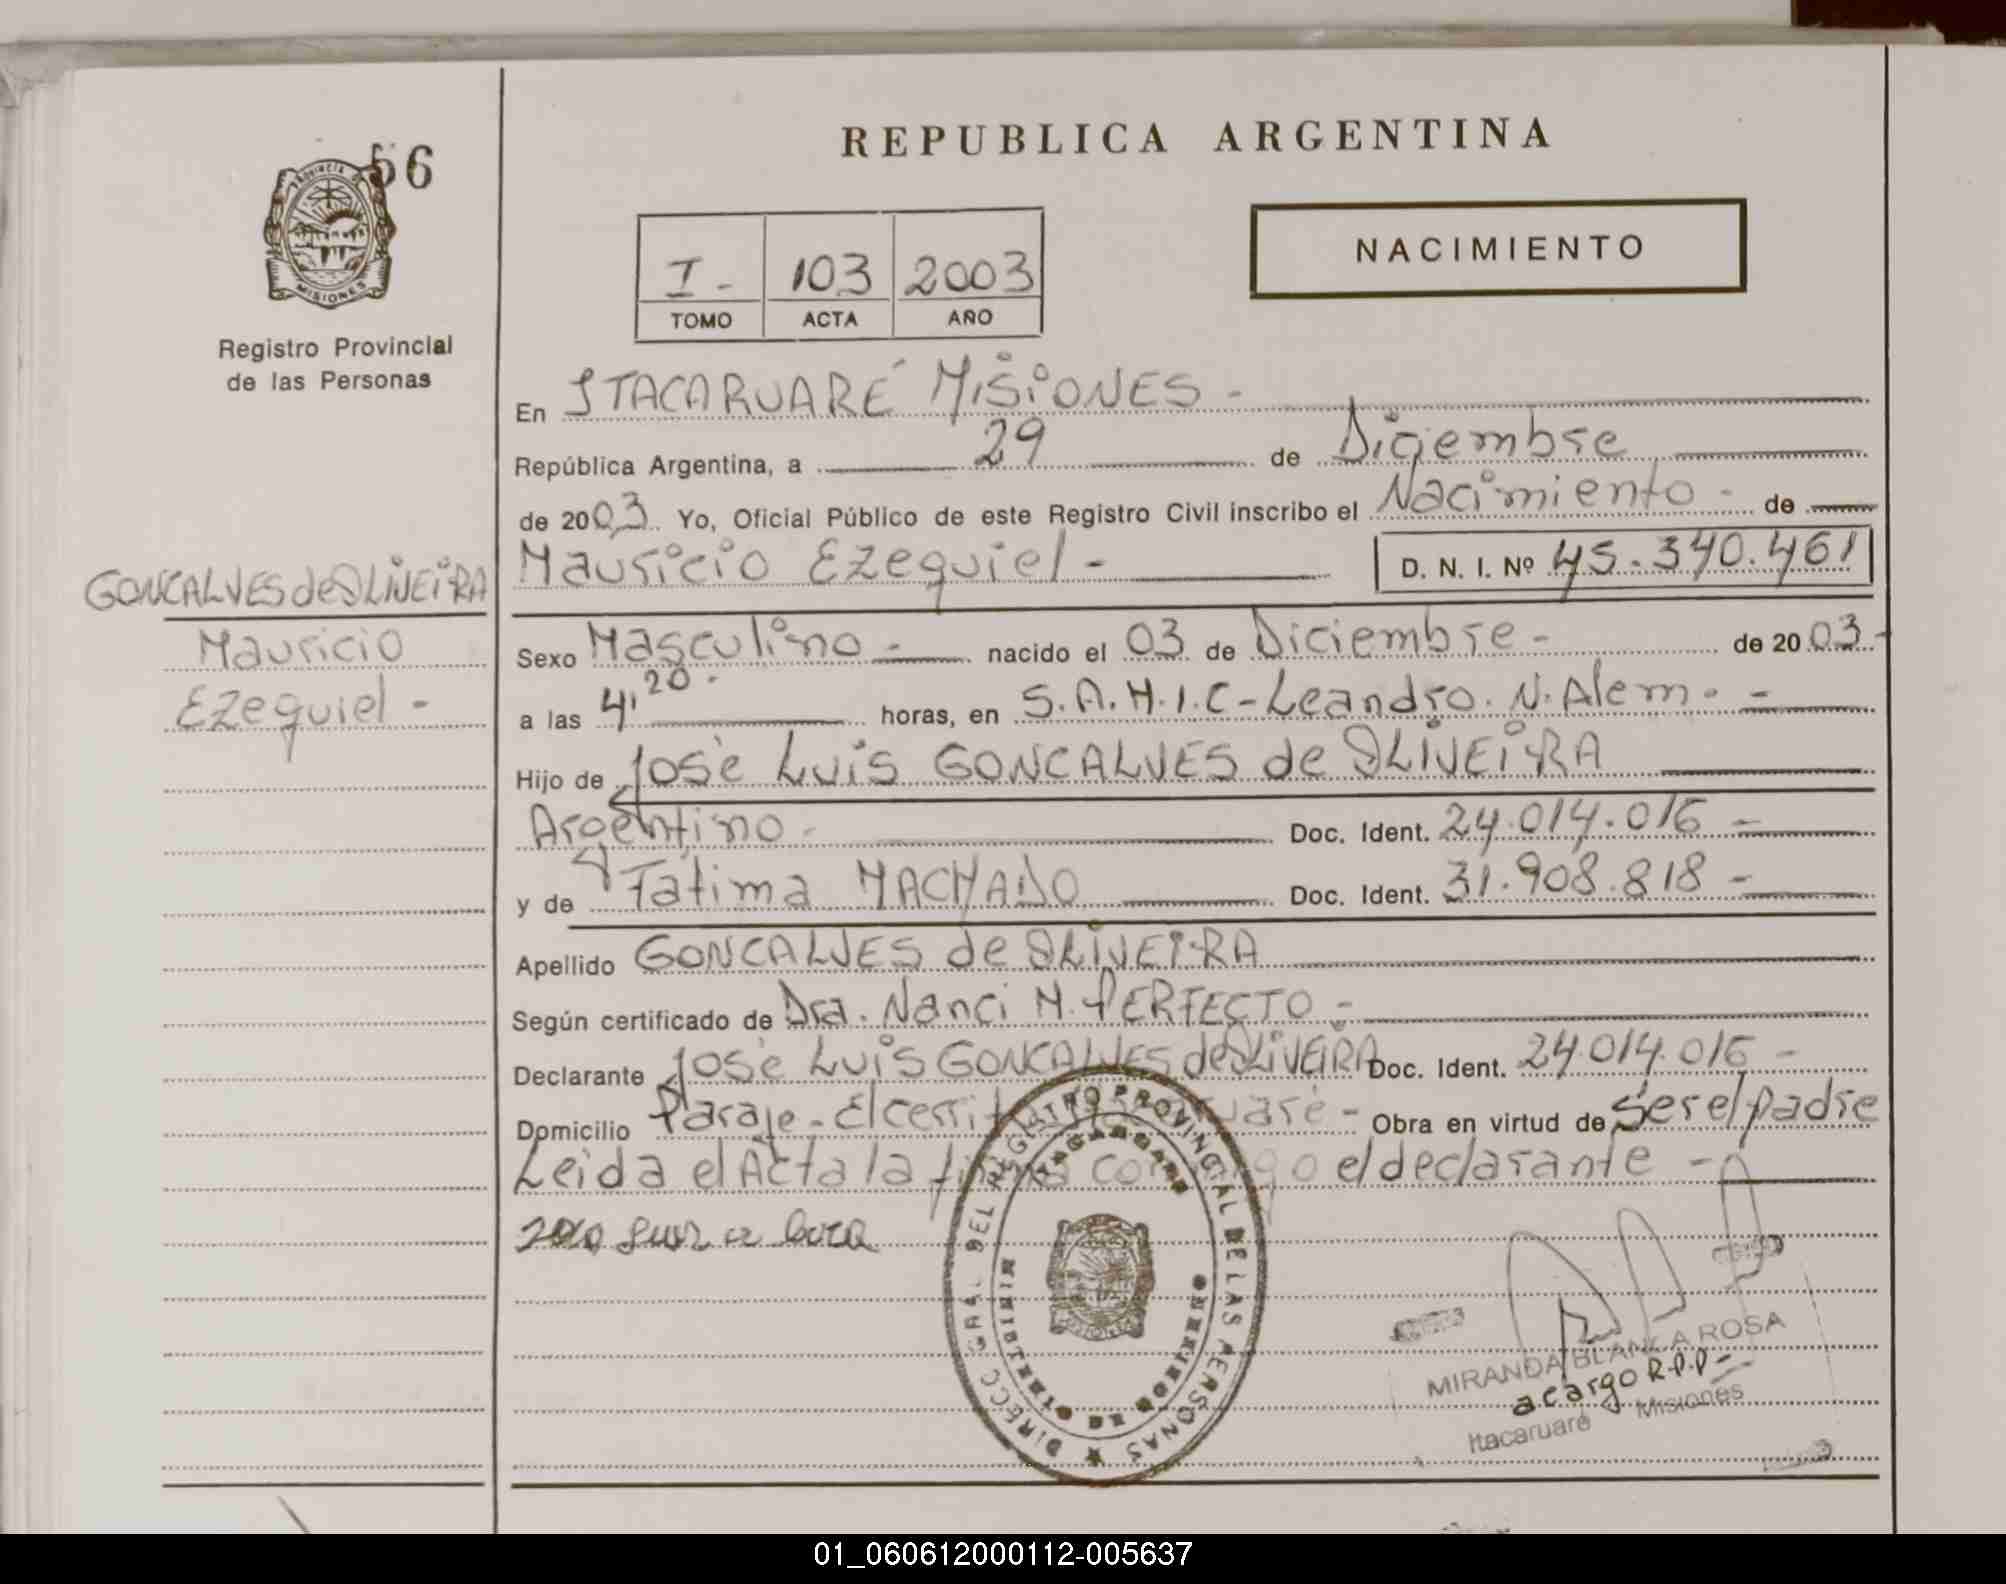 56
PROVINCIA DE
MISIONES
Registro Provincial
de las Personas
GONCALVES de OLIVEIRA
Mauricio
Ezequiel -
REPUBLICA ARGENTINA
I - 103 2003
TOMO ACTA AÑO
NACIMIENTO
En ITACARUARÉ MISIONES -
República Argentina, a 29 de Diciembre
de 2003. Yo, Oficial Público de este Registro Civil inscribo el Nacimiento - de
Mauricio Ezequiel - D. N. I. Nº 45.340.461
Sexo Masculino - nacido el 03 de Diciembre - de 2003 -
a las 4,20. horas, en S.A.M.I.C - Leandro. N. Alem. -
Hijo de José Luis GONCALVES de OLIVEIRA
Argentino - Doc. Ident. 24.014.016 -
y de Fátima MACHADO Doc. Ident. 31.908.818 -
Apellido GONCALVES de OLIVEIRA
Según certificado de Dra. Nanci M. PERFECTO -
Declarante José Luis GONCALVES de OLIVEIRA Doc. Ident. 24.014.016 -
Domicilio Paraje - El cerrito Itacaruaré - Obra en virtud de Ser el padre
Leida el Acta la firma conmigo el declarante -
DIRECC. GRAL. DEL REGISTRO PROVINCIAL DE LAS PERSONAS
MINISTERIO DE GOBIERNO
MIRANDA BLANCA ROSA
a cargo R.P.P -
Itacaruaré Misiones
01_060612000112-005637